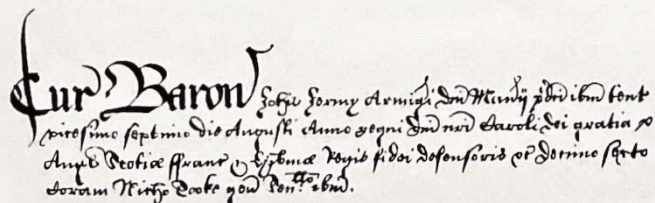 Cur Baron Johis Jermy Armigi dni Manij pdci ibm tent
vicesimo septimo die Augusti Anno regni dni nri Caroli dei gratia
Angl Scotiæ ffranc & Hibniæ Regis fidei defensoris &c decimo sexto
Coram Nicho Cooke gen Senllo ibm.